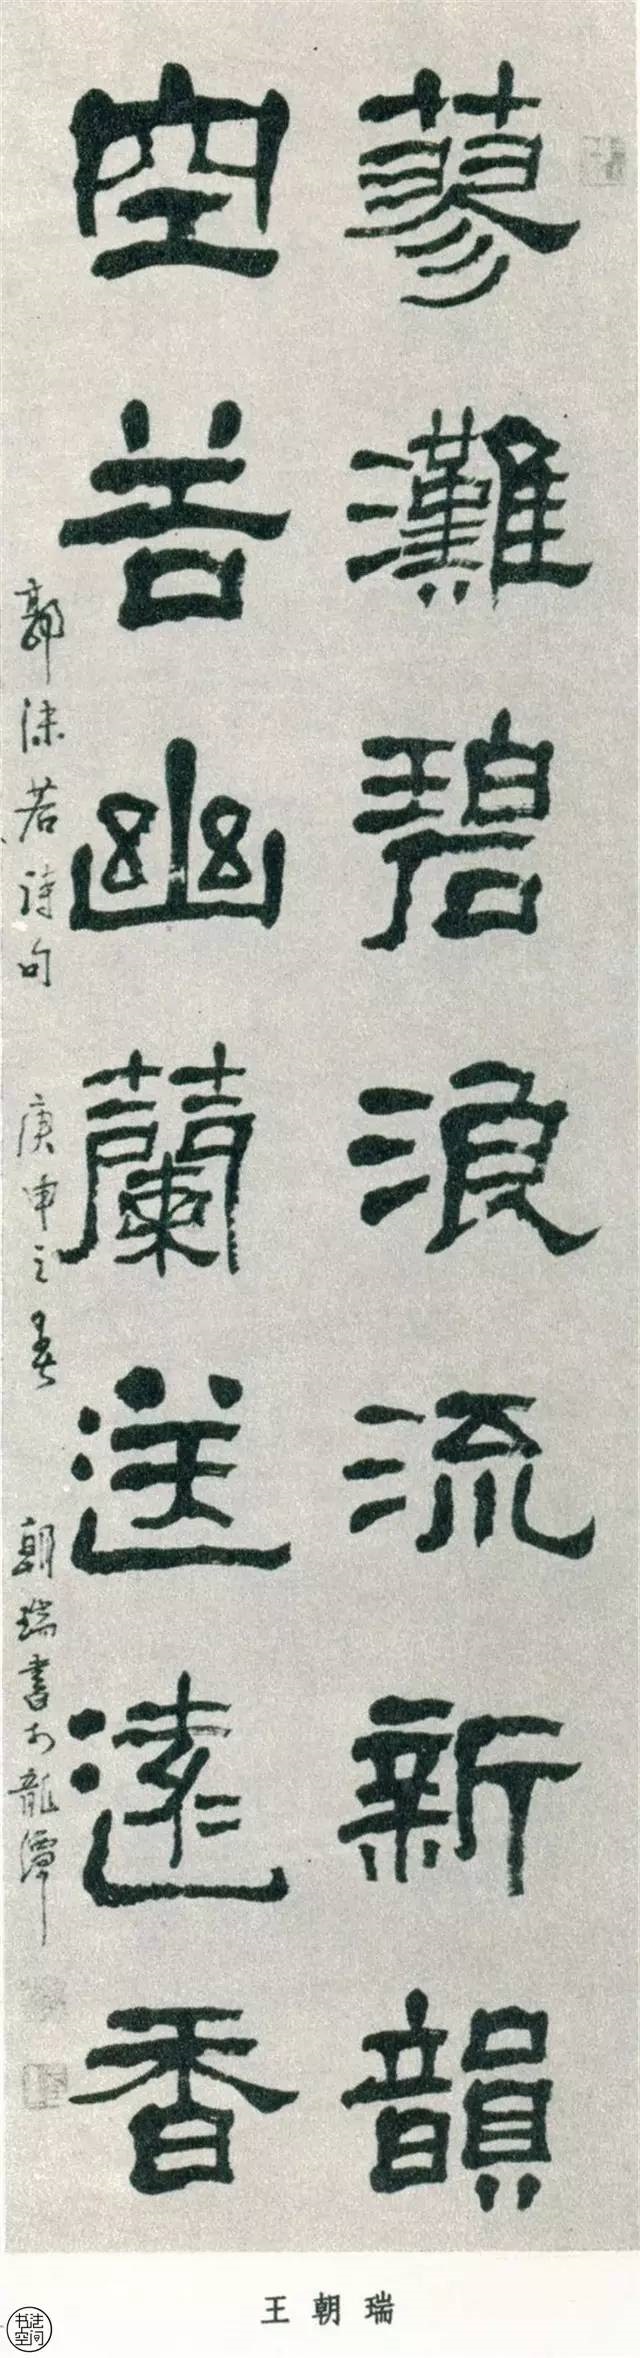 蓼灘碧浪流新韻
空谷幽蘭送遠香
郭沫若詩句 庚申之春 朝瑞書於龍潭
王朝瑞
书法空间